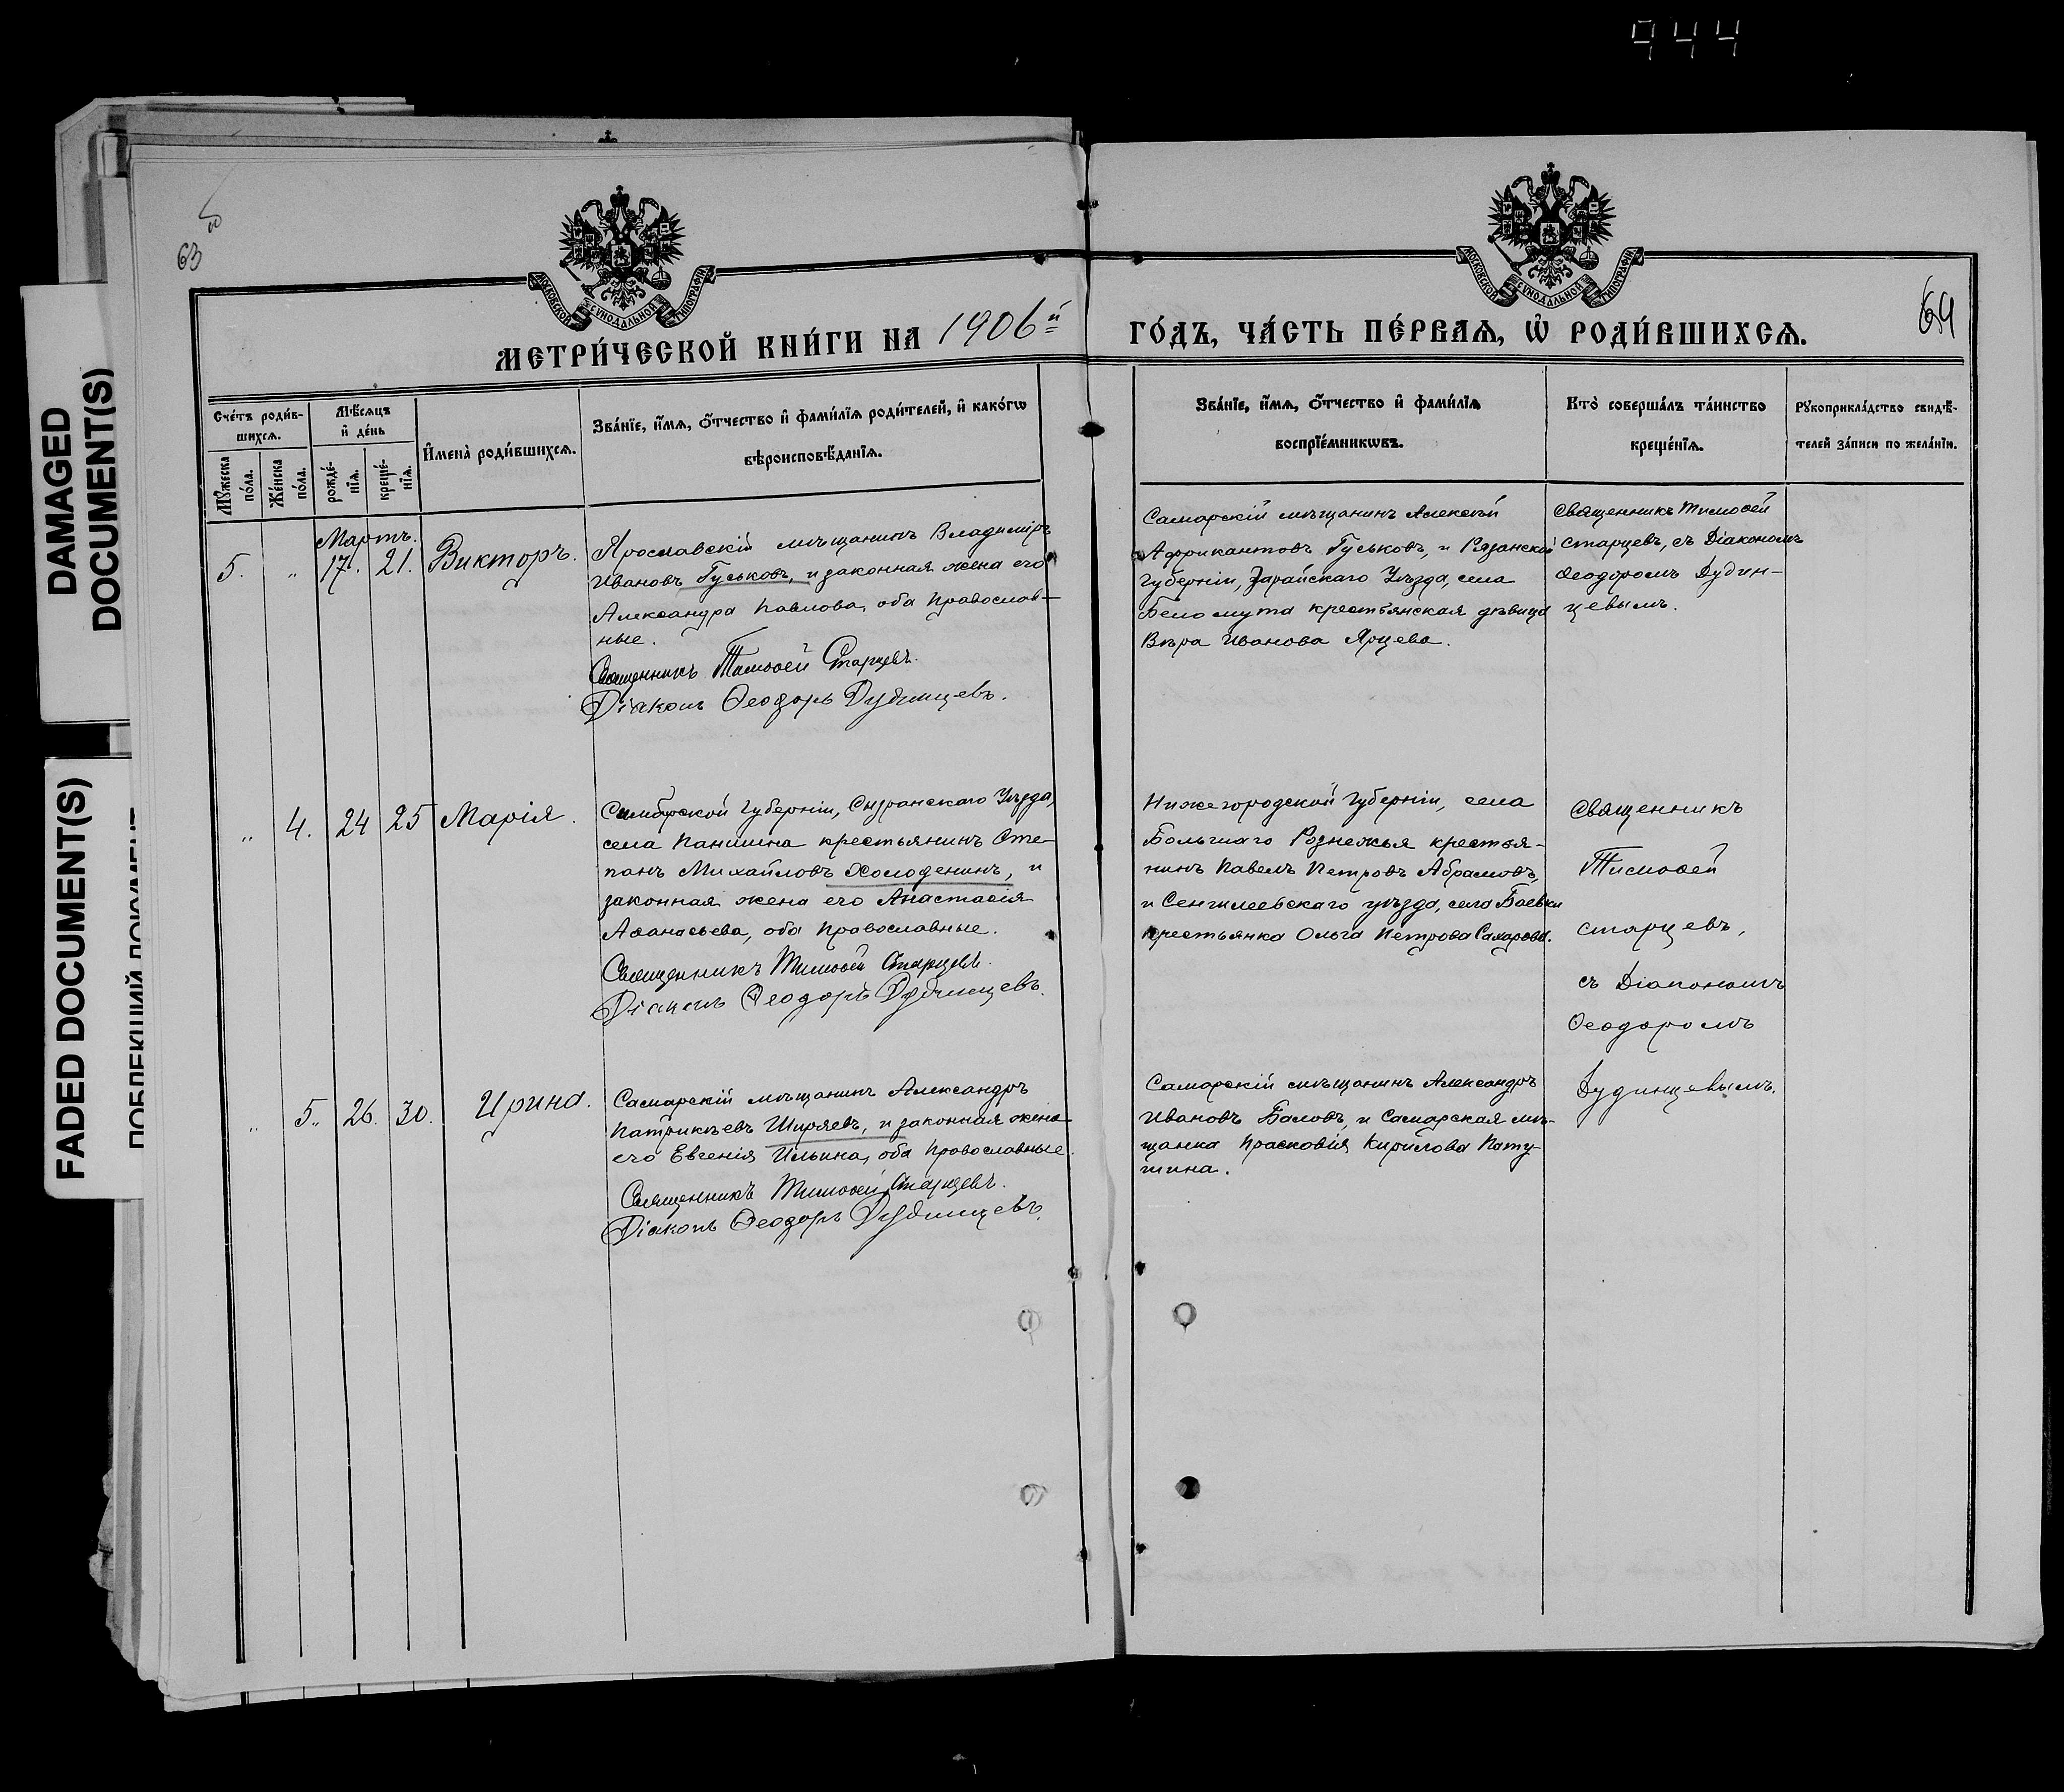 944
DAMAGED
DOCUMENT(S)
FADED DOCUMENT(S)
63
64
МОСКОВСКОЙ СѴНОДАЛЬНОЙ ТИПОГРАФІИ
МОСКОВСКОЙ СѴНОДАЛЬНОЙ ТИПОГРАФІИ
МЕТРИ́ЧЕСКОЙ КНИ́ГИ НА 1906й ГО́ДЪ, ЧА́СТЬ ПЕ́РВАѦ, Ѡ҆ РОДИ́ВШИХСѦ.
Сче́тъ роди́в-
шихсѧ.
Мꙋ́жеска
по́ла.
Же́нска
по́ла.
Мѣ́сѧцъ
и҆ де́нь
рожде́-
нїѧ.
креще́-
нїѧ.
И҆мена̀ роди́вшихсѧ.
Зва́нїе, и҆́мѧ, ѻ҆́тчество и҆ фами́лїѧ роди́телей, и҆ како́гѡ
вѣроисповѣ́данїѧ.
Зва́нїе, и҆́мѧ, ѻ҆́тчество и҆ фами́лїѧ
воспрїе́мникѡвъ.
Кто̀ соверша́лъ та́инство
креще́нїѧ.
Рꙋкоприкла́дство свидѣ́-
телей за́писи по жела́нїю.
Мартъ.
5. " 17. 21. Викторъ.
Ярославскій мѣщанинъ Владиміръ
Ивановъ Гуськовъ, и законная жена его
Александра Павлова, оба православ-
ные.
Священникъ Тимоѳей Старцевъ.
Діаконъ Ѳеодоръ Дудинцевъ.
Самарскій мѣщанинъ Алексѣй
Африкантовъ Гуськовъ, и Рязанской
губерніи, Зарайскаго Уѣзда, села
Бело мута крестьянская дѣвица
Вѣра Иванова Ярцева.
Священникъ Тимоѳей
Старцевъ, съ Діакономъ
Ѳеодоромъ Дудин-
цевымъ.
" 4. 24 25 Марія.
Симбирской губерніи, Сызранскаго Уѣзда,
села Паншина крестьянинъ Сте-
панъ Михайловъ Холоденинъ, и
законная жена его Анастасія
Аѳанасьева, оба православные.
Священникъ Тимоѳей Старцевъ.
Діаконъ Ѳеодоръ Дудинцевъ.
Нижегородской губерніи, села
Большаго Рознежья крестья-
нинъ Павелъ Петровъ Абрамовъ,
и Сенгилеевскаго уѣзда, села Баевки
крестьянка Ольга Петрова Сахарова.
Священникъ
Тимоѳей
Старцевъ,
съ Діакономъ
Ѳеодоромъ
Дудинцевымъ.
" 5. 26. 30. Ирина.
Самарскій мѣщанинъ Александръ
Патрикѣевъ Ширяевъ, и законная жена
его Евгенія Ильина, оба православные.
Священникъ Тимоѳей Старцевъ.
Діаконъ Ѳеодоръ Дудинцевъ.
Самарскій мѣщанинъ Александръ
Ивановъ Баловъ, и Самарская мѣ-
щанка Прасковія Кирилова Пату-
шина.